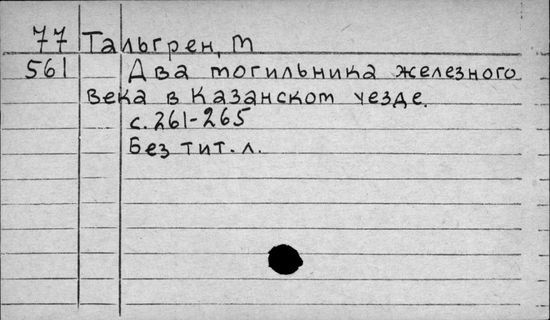 77 Тальгрен, М
561 Два могильника железного
века в Казанском уезде.
с. 261-265
Без тит. л.